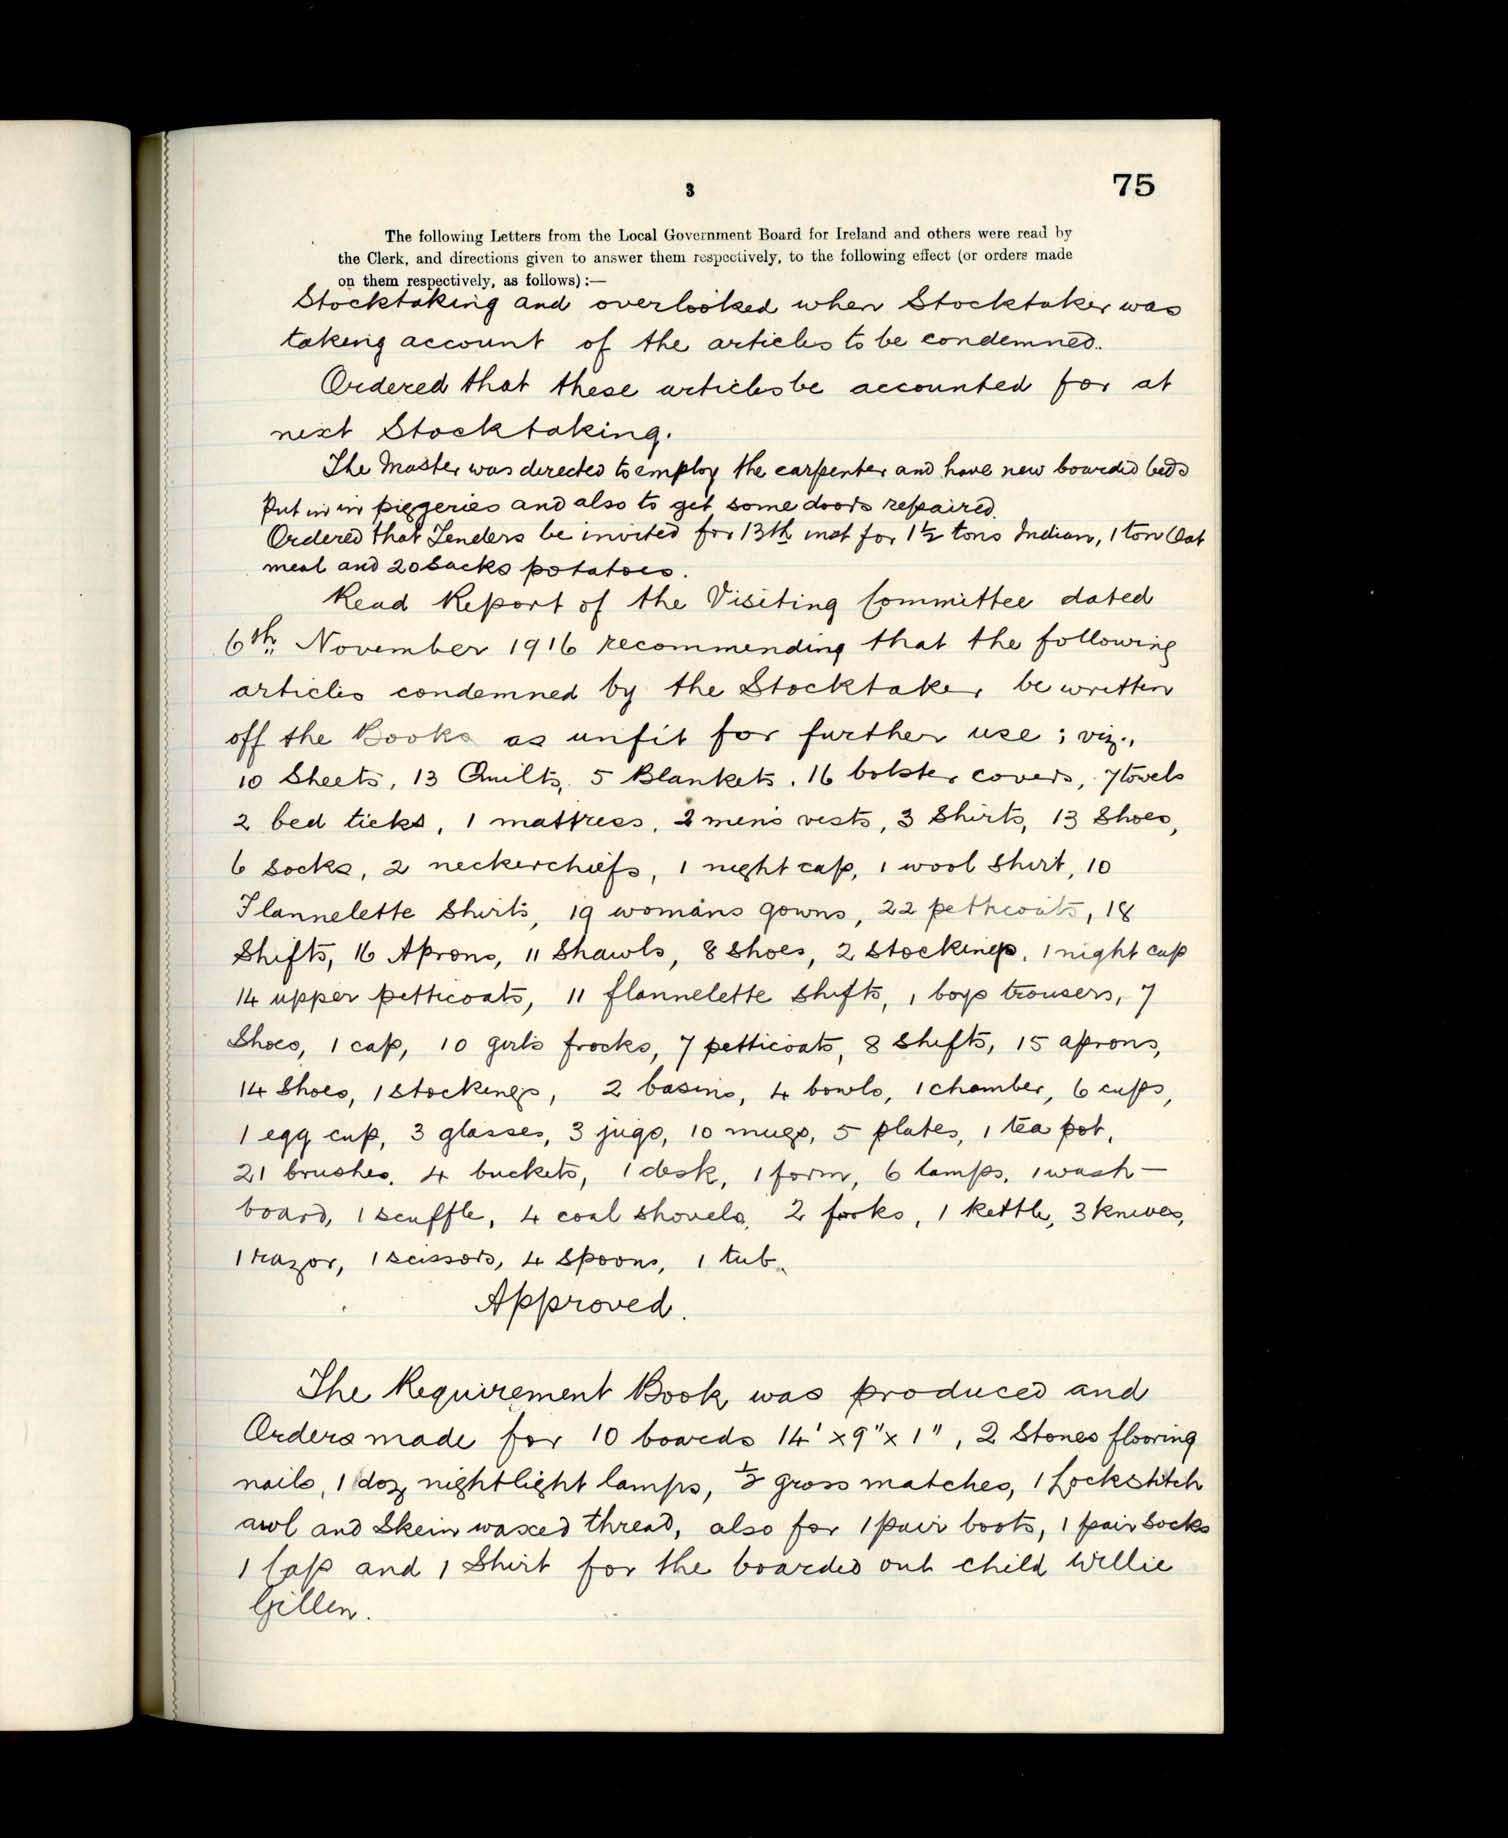 3
75
The following Letters from the Local Government Board for Ireland and others were read by
the Clerk, and directions given to answer them respectively, to the following effect (or orders made
on them respectively, as follows):—
Stocktaking and overlooked when Stocktaker was
taking account of the articles to be condemned.
Ordered that these articles be accounted for at
next Stocktaking.
The Master was directed to employ the carpenter and have new boarded beds
Put in in piggeries and also to get some doors repaired.
Ordered that Tenders be invited for 13th inst for 1½ tons Indian, 1 ton Oat
meal and 20 Sacks potatoes.
Read Report of the Visiting Committee dated
6th November 1916 recommending that the following
articles condemned by the Stocktaker be written
off the Books as unfit for further use; viz.,
10 Sheets, 13 Quilts, 5 Blankets, 16 bolster covers, 7 towels
2 bed ticks, 1 mattress, 2 men's vests, 3 Shirts, 13 Shoes,
6 socks, 2 neckerchiefs, 1 night cap, 1 wool Shirt, 10
Flannelette Shirts, 19 woman's gowns, 22 petticoats, 18
Shifts, 16 Aprons, 11 Shawls, 8 Shoes, 2 Stockings, 1 night cap
14 upper petticoats, 11 flannelette Shifts, 1 boys trousers, 7
Shoes, 1 cap, 10 girl's frocks, 7 petticoats, 8 Shifts, 15 aprons,
14 Shoes, 1 Stockings, 2 basins, 4 bowls, 1 chamber, 6 cups,
1 egg cup, 3 glasses, 3 jugs, 10 mugs, 5 plates, 1 tea pot,
21 brushes, 4 buckets, 1 desk, 1 form, 6 lamps, 1 wash-
board, 1 scuffle, 4 coal Shovels, 2 forks, 1 kettle, 3 knives,
1 razor, 1 scissors, 4 Spoons, 1 tub.
Approved.
The Requirement Book was produced and
Orders made for 10 boards 14' x 9" x 1", 2 Stones flooring
nails, 1 doz nightlight lamps, ½ gross matches, 1 Lockstitch
awl and Skein waxed thread, also for 1 pair boots, 1 pair Socks
1 Cap and 1 Shirt for the boarded out child Willie
Gillen.